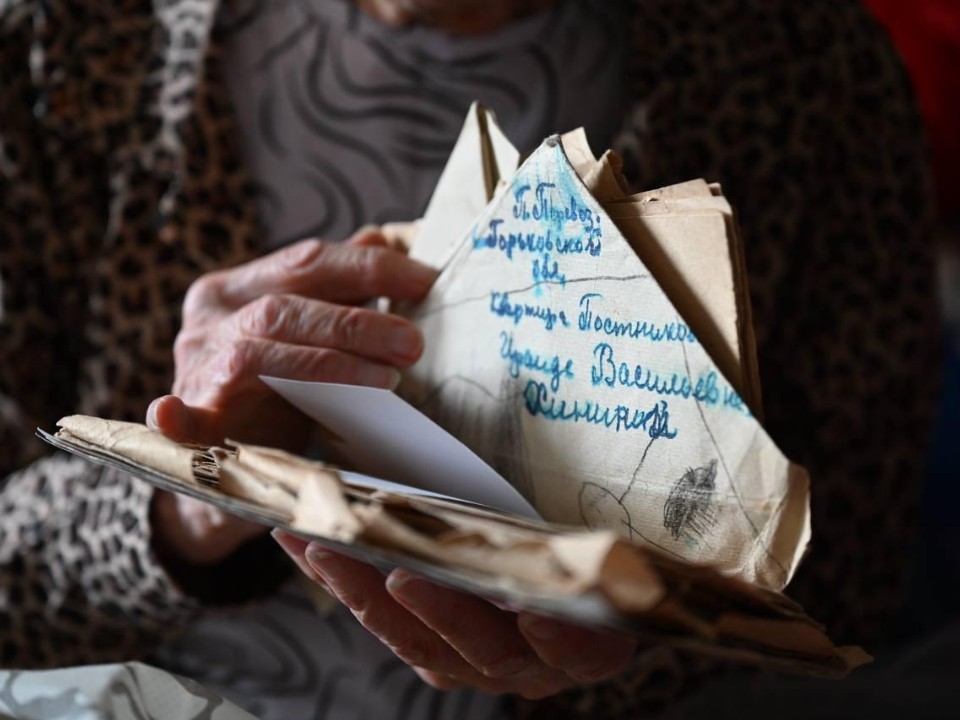 П. Перевоз,
Горьковской
обл,
квартира Постников
Ираиде Васильевне
Хининой